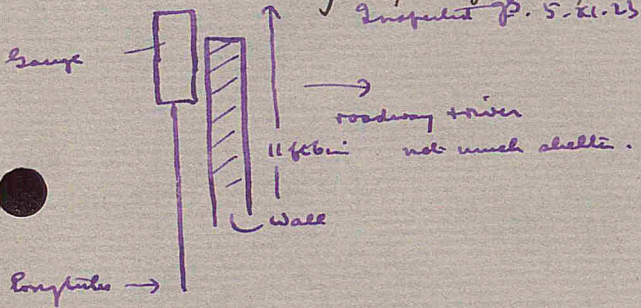 Inspected JP. 5.XI.23
Gauge
roadway + river
11 ft 6 in not much shelter.
Wall
Long tube →